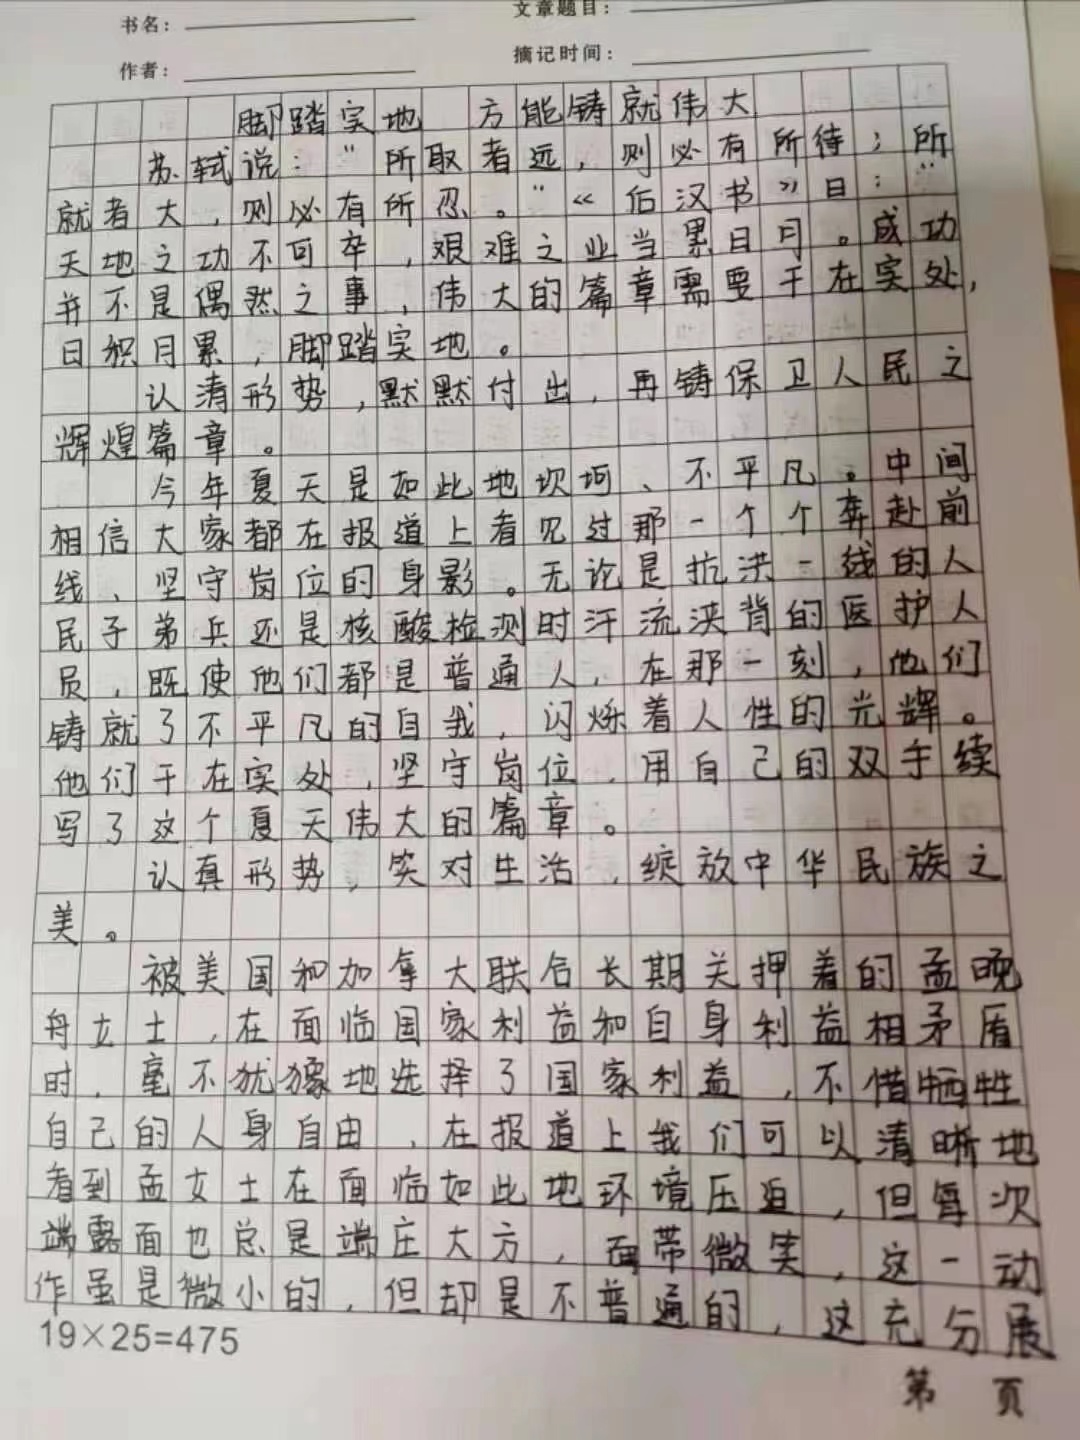 书名：
文章题目：
作者：
摘记时间：
脚踏实地 方能铸就伟大
苏轼说："所取者远，则必有所待；所
就者大，则必有所忍。"《后汉书》曰："
天地之功不可卒，艰难之业当累日月。成功
并不是偶然之事，伟大的篇章需要干在实处，
日积月累，脚踏实地。
认清形势，默默付出，再铸保卫人民之
辉煌篇章。
今年夏天是如此地坎坷、不平凡。中间
相信大家都在报道上看见过那一个个奔赴前
线、坚守岗位的身影。无论是抗洪一线的人
民子弟兵还是核酸检测时汗流浃背的医护人
员，既使他们都是普通人，在那一刻，他们
铸就了不平凡的自我，闪烁着人性的光辉。
他们干在实处，坚守岗位，用自己的双手续
写了这个夏天伟大的篇章。
认真形势，笑对生活，绽放中华民族之
美。
被美国和加拿大联合长期关押着的孟晚
舟女士，在面临国家利益和自身利益相矛盾
时，毫不犹豫地选择了国家利益，不惜牺牲
自己的人身自由，在报道上我们可以清晰地
看到孟女士在面临如此地环境压迫，但每次
端露面也总是端庄大方，面带微笑，这一动
作虽是微小的，但却是不普通的，这充分展
19×25=475
第 页